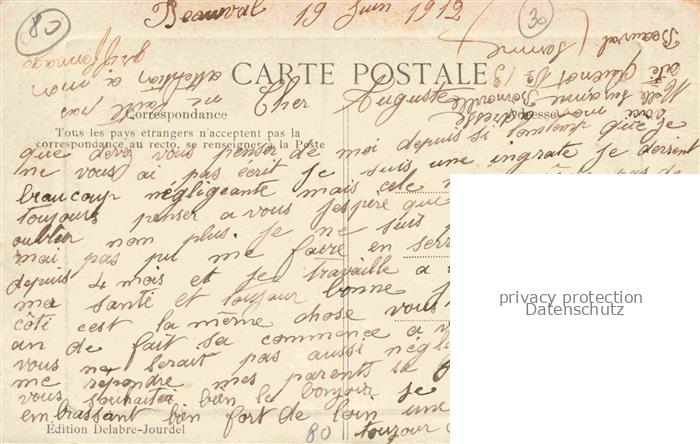 80
30
Beauval 19 Juin 1912
CARTE POSTALE
Correspondance
Tous les pays étrangers n'acceptent pas la
correspondance au recto, se renseigner à la Poste
ne fait pas
attention à mon
griffonnage
Melle Suzanne Bernaville
cité
Beauval Somme
voici mon adresse
Cher Auguste
que devez vous penser de moi depuis si lontemp que je
ne vous ai pas ecrit je suis une ingrate je devient
beaucoup négligeante mais cele
toujours penser a vous jespère que
oublier nom plus. je ne suis
mai pas pu me faire en serr
depuis 4 mois et je travaille a
ma santé et toujour bonne
côté cest la même chose vous
an de fait sa commance a v
vous ne serait pas aussi négli
me répondre mes parents sa
vous souhaiter bien le bonjour je
embrassant bien fort de loin une
toujour
Édition Delabre-Jourdel
80
privacy protection
Datenschutz